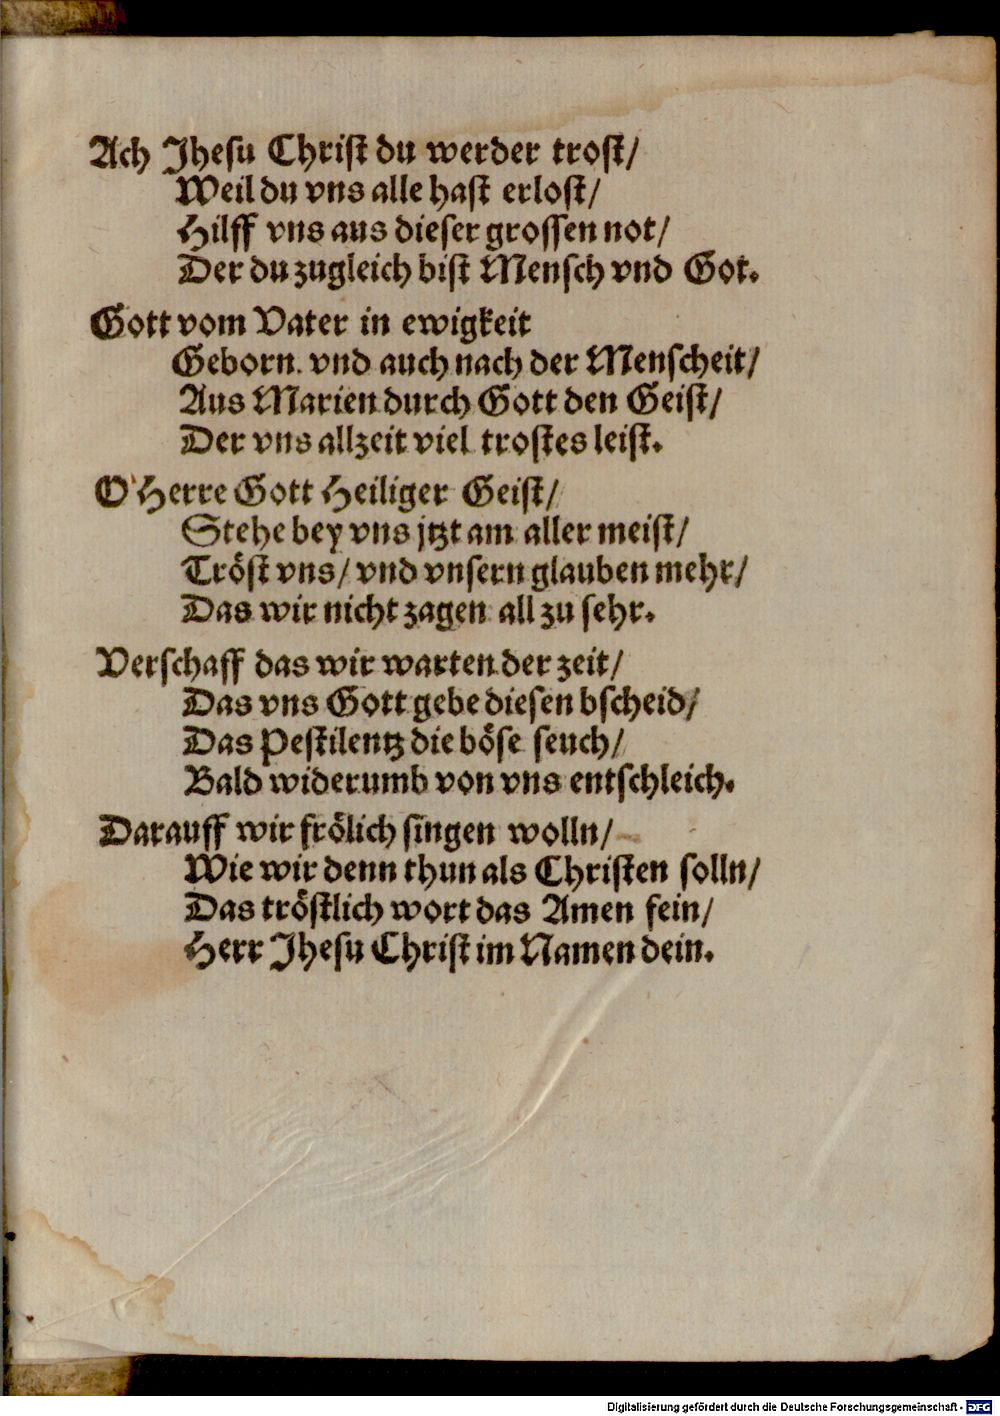 Ach Jhesu Christ du werder trost/
Weil du vns alle hast erlost/
Hilff vns aus dieser grossen not/
Der du zugleich bist Mensch vnd Got.
Gott vom Vater in ewigkeit
Geborn. vnd auch nach der Menscheit/
Aus Marien durch Gott den Geist/
Der vns allzeit viel trostes leist.
O Herre Gott Heiliger Geist/
Stehe bey vns jtzt am aller meist/
Tröst vns/ vnd vnsern glauben mehr/
Das wir nicht zagen all zu sehr.
Verschaff das wir warten der zeit/
Das vns Gott gebe diesen bscheid/
Das Pestilentz die böse seuch/
Bald widerumb von vns entschleich.
Darauff wir frölich singen wolln/
Wie wir denn thun als Christen solln/
Das tröstlich wort das Amen fein/
Herr Jhesu Christ im Namen dein.
Digitalisierung gefördert durch die Deutsche Forschungsgemeinschaft - DFG